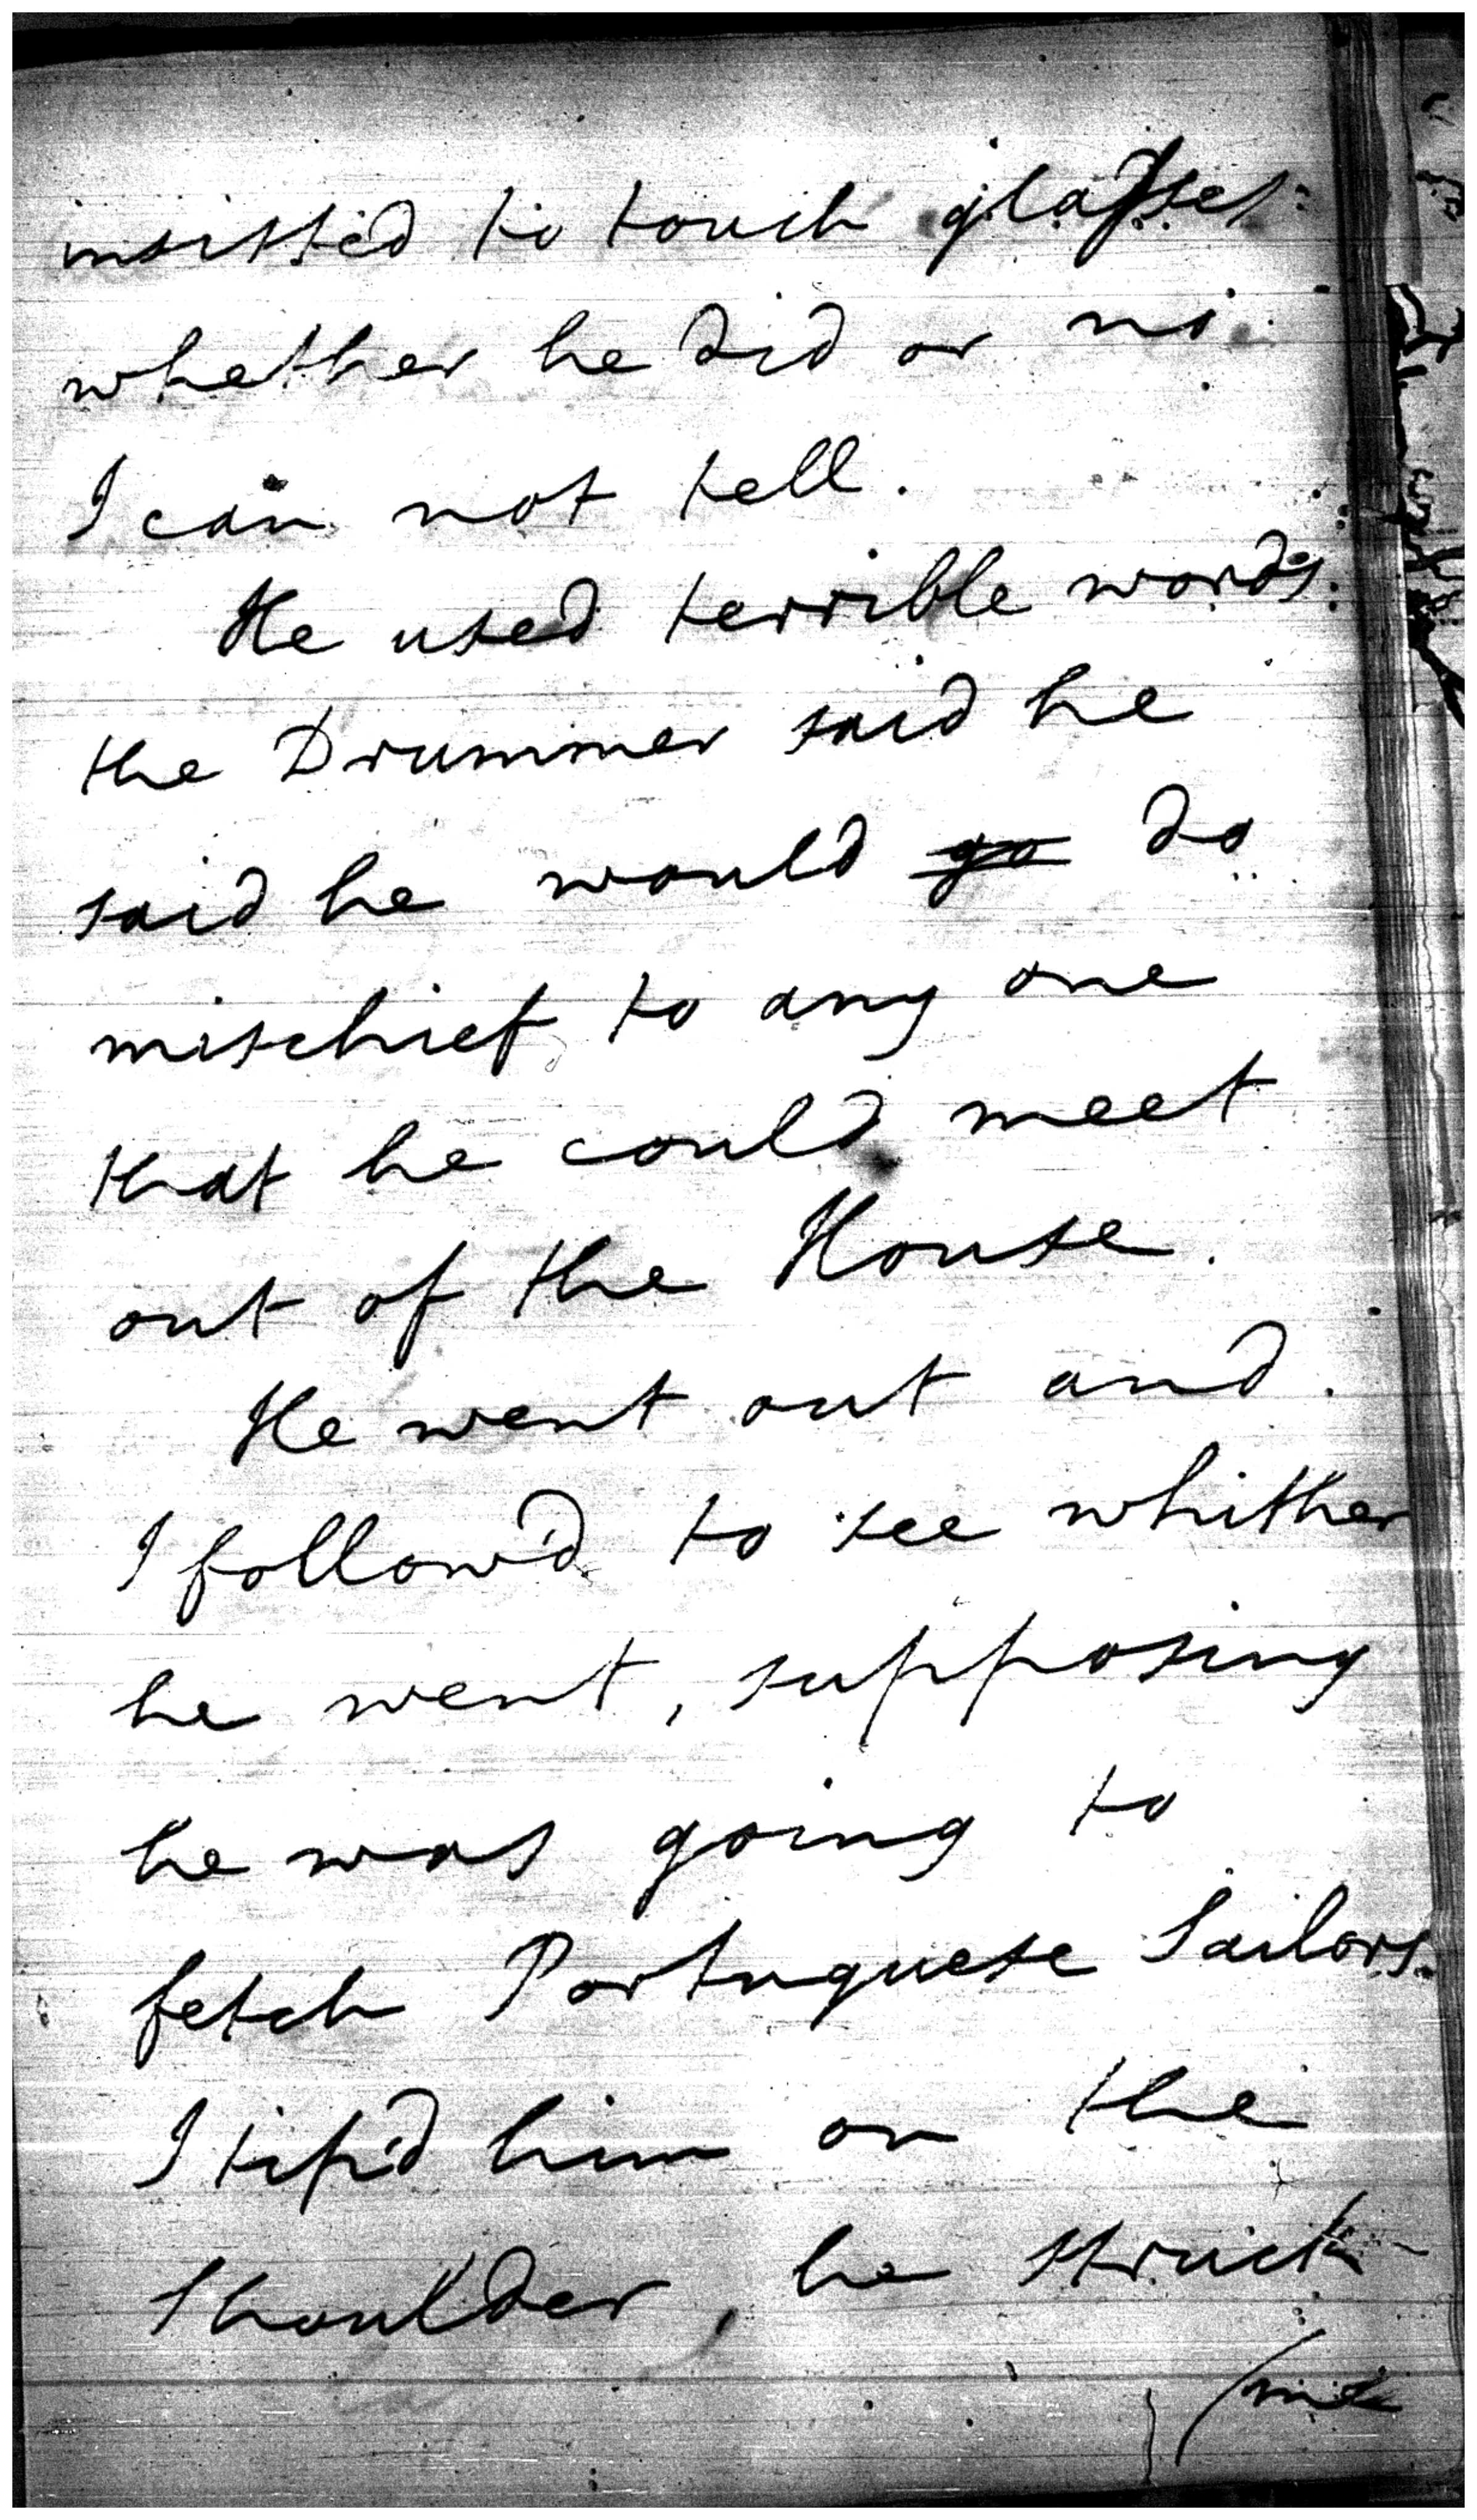 insisted to touch glasses
whether he did or no
I can not tell.
He used terrible words
the Drummer said he
said he would go do
mischief to any one
that he could meet
out of the House.
He went out and
I follow'd to see whither
he went, supposing
he was going to
fetch Portuguese Sailors.
I tip'd him on the
Shoulder, he struck
(me